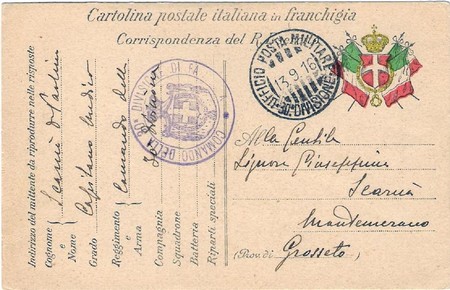 Cartolina postale italiana in franchigia
Corrispondenza del R.
UFFICIO POSTA MILITARE
13.9.18
DIVISIONE
COMANDO DELLA 80ª DIVISIONE DI FA
Indirizzo del mittente da riprodurre nelle risposte
Cognome
e
Nome
Scarnà di Paolino
Grado Capitano medico
Reggimento
o
Arma
Comando della
Compagnia
Squadrone
Batteria
Riparti speciali
Alla Gentile
Signora Giuseppina
Scarnà
Montemerano
(Prov. di) Grosseto